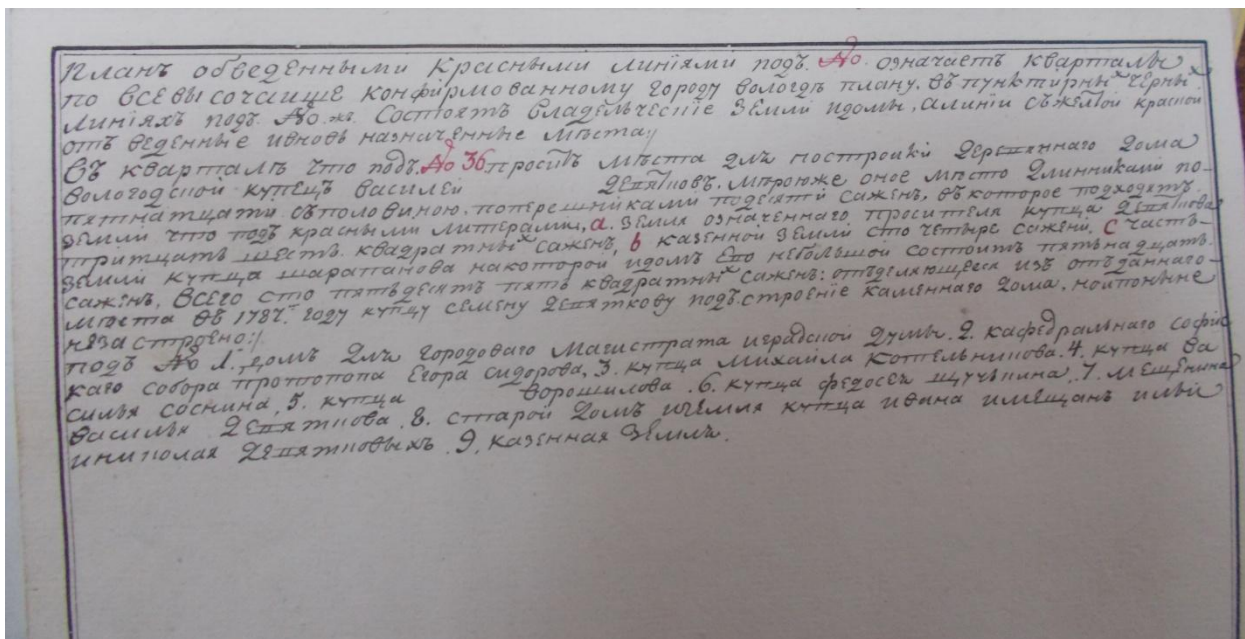 Планъ обведенными красными линіями подъ. №. означаетъ кварталы
по всевысочайше конфирмованному городу вологдѣ плану. въ пунктирныхъ черныхъ
линіяхъ подъ. №. жъ. состоятъ владѣльческіе земли идомы, алиніи съжелтой краской
отъ веденные ивновь назначенные мѣста:/
Въ кварталѣ что подъ. №36 проситъ мѣста для построики деревяннаго дома
вологодской купецъ василей Депятковъ. мѣроюже оное мѣсто длинниками по-
пятнатцати съполовиною, поперешниками подесяти саженъ, въ которое подходятъ
земли что подъ красными литерами, а. земля означеннаго просителя купца Депяткова
тритцать шесть квадратныхъ саженъ, b казенной земли сто четыре сажени, c часть-
земли купца шарапанова накоторой, идомъ его небольшой состоитъ пятьнадцать-
саженъ, всего сто пятьдесятъ пять квадратныхъ саженъ: отделяющееся изъ отъданнаго-
мѣста въ 1787. году купцу семену Депяткову подъ строеніе каменнаго дома, ноипонынѣ
незастроено:/
подъ № 1. домъ для городоваго магистрата иградской думы. 2. кафедральнаго софис
каго собора протопопа Егора сидорова, 3. купца михайла котельникова. 4. купца ва
силья соснина, 5. купца Ворошилова. 6. купца федосея щучькина, 7. мещенина
василья Депяткова. 8. старой домъ иземля купца ивана имещанъ ильи
иниколая Депятковыхъ. 9, казенная земля.